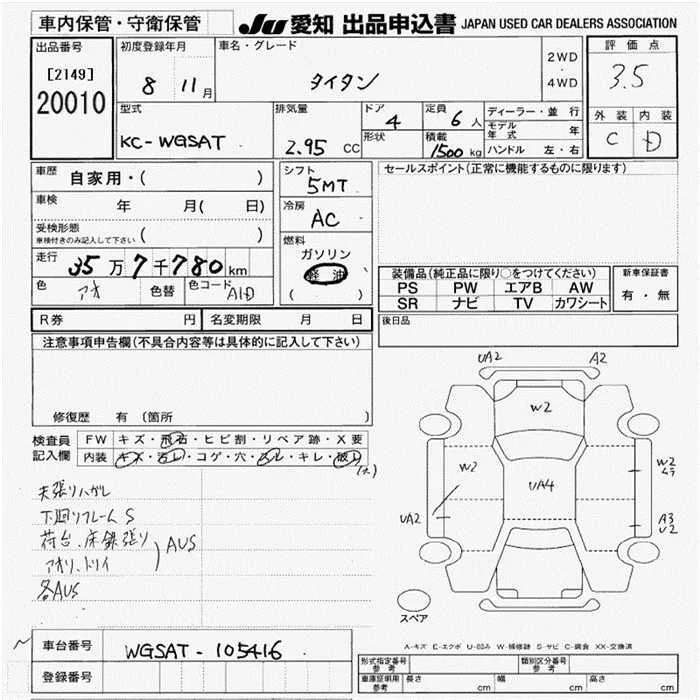 車内保管・守衛保管
JU 愛知 出品申込書 JAPAN USED CAR DEALERS ASSOCIATION
出品番号
[2149]
20010
初度登録年月
8 11月
車名・グレード
タイタン
2WD
・
4WD
評価点
3.5
外装 内装
C D
型式
KC-WGSAT
排気量
2.95 CC
ドア
4
形状
定員
6人
積載
1500 kg
ディーラー・並行
モデル年式 年
ハンドル 左・右
車歴
自家用・( )
車検 年 月( 日)
受検形態
車検付きのみ記入して下さい ( )
走行 35万7千780km
色 アオ 色替 色コード A1D
シフト
5MT
冷房
AC
燃料
ガソリン
軽油
( )
セールスポイント(正常に機能するものに限ります)
装備品(純正品に限り○をつけてください)
PS PW エアB AW
SR ナビ TV カワシート
新車保証書
有・無
R券 円 名変期限 月 日
後日品
注意事項申告欄(不具合内容等は具体的に記入して下さい)
修復歴 有 (箇所 )
検査員記入欄
FW キズ・飛石・ヒビ割・リペア跡・X要
内装 キズ・汚レ・コゲ・穴・スレ・キレ・破レ
(大)
天張リハガレ
下廻リフレームS
荷台、床鉄張り
アオリ、トリイ
AUS
各AUS
UA2 A2
W2
W2
UA4
W2
ムラ
UA2
A3
U2
スペア
A-キズ E-エクボ U-凹み W-補修跡 S-サビ C-腐食 XX-交換済
車台番号 WGSAT-105416
登録番号
形式指定番号 参考
類別区分番号 参考
車庫証明用 参考 長さ cm 幅 cm 高さ cm